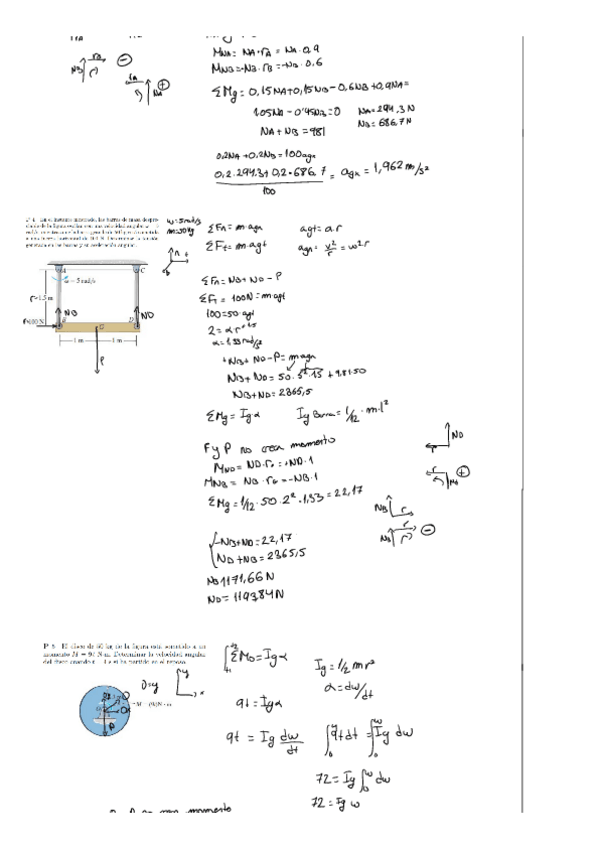 MNA = NA·rA = NA·0,9
MNB = -NB·rB = -NB·0,6
ΣMg = 0,15NA + 0,15NB - 0,6NB + 0,9NA =
1.05NA - 0'45NB = 0 NA = 294.3N
NB = 686,7N
NA + NB = 981
0.2NA + 0.2NB = 100agx
0,2·294.3 + 0,2·686.7 / 100 = agx = 1,962 m/s²
w = 5 rad/s
m = 50 kg
ΣFn = m·agn agt = α·r
ΣFt = m·agt agn = v²/r = w²r
A C
ω = 5 rad/s
r = 1.5 m
NB ND
1 m 1 m
P
ΣFn = NB + ND - P
ΣFt = 100N = m·agt
100 = 50·agt
2 = α·r
α = 1.33 rad/s²
+NB + ND - P = m·agn
NB + ND = 50·5²·1.5 + 9.81·50
NB + ND = 2365,5
ΣMg = Ig α Ig Barra = 1/12·m·l²
F y P no crea momento
MND = ND·r = +ND·1
MNB = NB·r = -NB·1
ΣMg = 1/12·50·2²·1,33 = 22,17
-NB + ND = 22,17
ND + NB = 2365,5
NB 1171,66 N
ND = 1193,84 N
P 5 El disco de 60 kg de la figura está sometido a un
momento M = 9t N·m. Determinar la velocidad angular
del disco cuando t = 4 s si ha partido en el reposo.
ΣMo = Ig α Ig = 1/2 m r²
α = dw/dt
9t = Ig α
9t = Ig dw/dt ∫9t dt = ∫Ig dw
72 = Ig ∫dw
72 = Ig w
P no crea momento